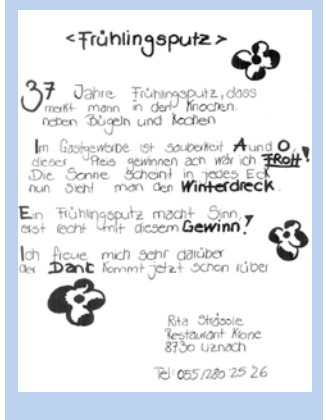 <Frühlingsputz>
37 Jahre Frühlingsputz, dass
merkt mann in den Knochen.
neben Bügeln und Kochen
Im Gastgewerbe ist sauberkeit A und O,
dieser Preis gewinnen ach wär ich FROH!
Die Sonne scheint in jedes Eck
nun sieht man den Winterdreck.
Ein Frühlingsputz macht Sinn,
erst recht mit diesem Gewinn!
Ich freue mich sehr darüber
der Dank kommt jetzt schon rüber
Rita Strässle
Restaurant Krone
8730 Uznach
Tel: 055/280 25 26